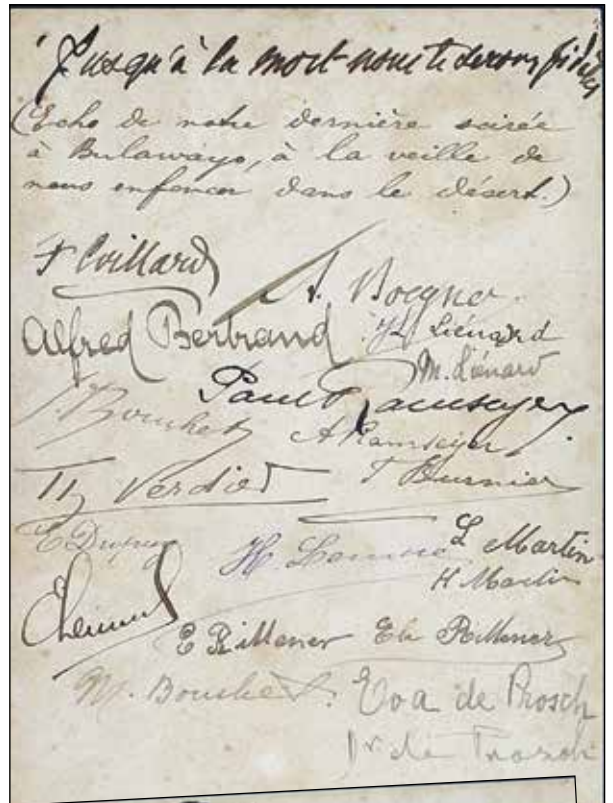 "Jusqu'à la mort nous te serons fidèles
(Echo de notre dernière soirée
à Bulawayo, à la veille de
nous enfoncer dans le désert.)
F Coillard
A. Boegner
Alfred Bertrand
Liénard
M. Liénard
Paul Ramseyer
J. Bouchet
A Ramseyer
Th Verdier
T Burnier
E Dupuy
H.
L Martin
H Martin
E Rittener
Ele Rittener
M. Bouchet.
Eva de Prosch
Dr de Prosch